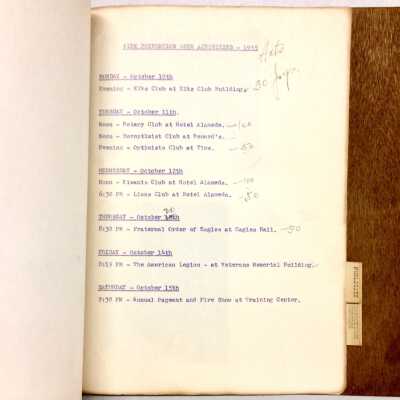 FIRE PREVENTION WEEK ACTIVITIES - 1955
Hats
30 for
MONDAY - October 10th
Evening - Elks Club at Elks Club Building.
TUESDAY - October 11th.
Noon - Rotary Club at Hotel Alameda. -100
Noon - Soroptimist Club at
Evening - Optimists Club at Tims. -50
WEDNESDAY - October 12th
Noon - Kiwanis Club at Hotel Alameda. -100
6:30 PM - Lions Club at Hotel Alameda. -50
THURSDAY - October
20
8:30 PM - Fraternal Order of Eagles at Eagles Hall. -50
FRIDAY - October 14th
8:15 PM - The American Legion - at Veterans Memorial Building.
SATURDAY - October 15th
7:30 PM - Annual Pageant and Fire Show at Training Center.